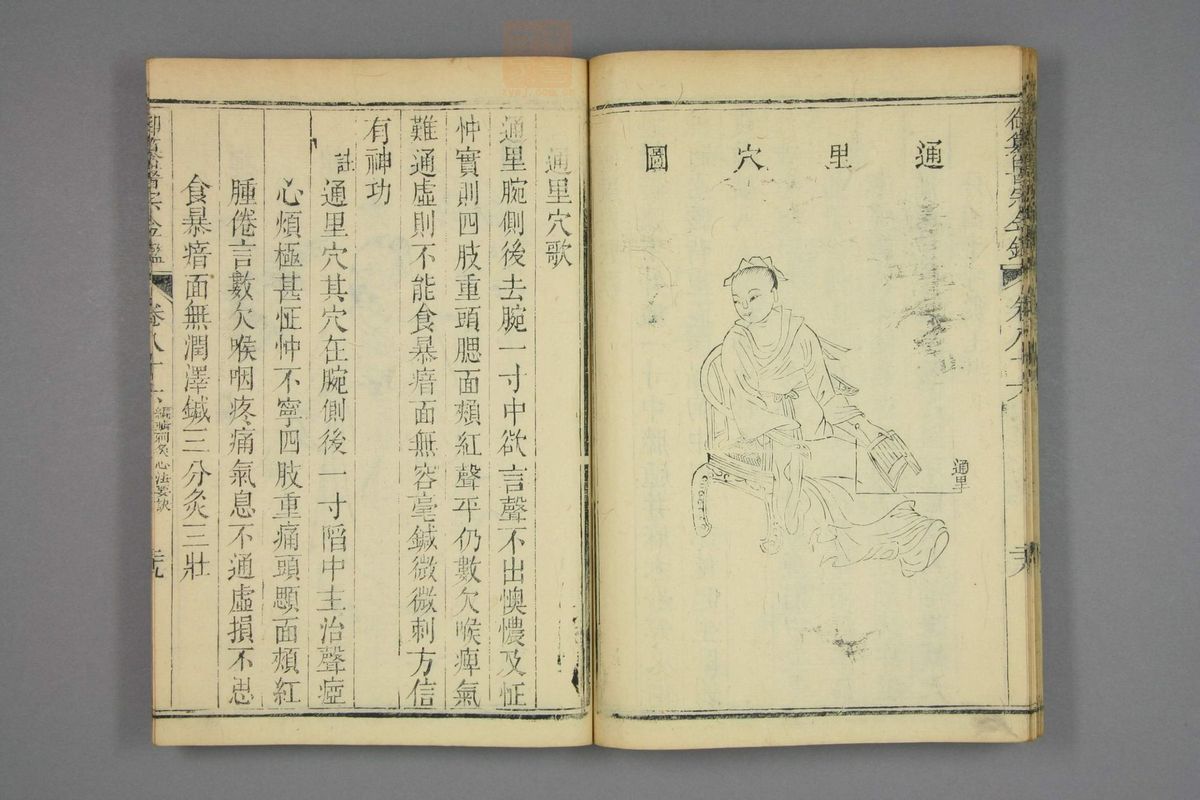 通里穴圖
通里
通里穴歌
通里腕側後去腕一寸中欲言聲不出懊憹及怔
忡實則四肢重頭腮面頰紅聲平仍數欠喉痺氣
難通虛則不能食暴瘖面無容毫鍼微微刺方信
有神功
註
通里穴其穴在腕側後一寸陷中主治聲瘂
心煩極甚怔忡不寧四肢重痛頭顋面頰紅
腫倦言數欠喉咽疼痛氣息不通虛損不思
食暴瘖面無潤澤鍼三分灸三壯
御纂醫宗金鑑
卷八十六
心法要訣